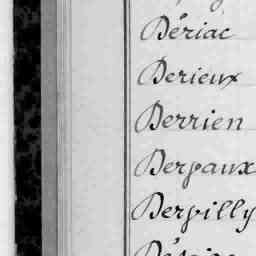 Dériac
Derieux
Derrien
Derpaux
Derpilly